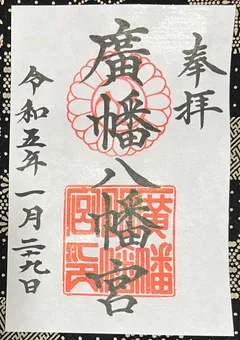 奉拝
廣幡八幡宮
令和五年一月二十九日